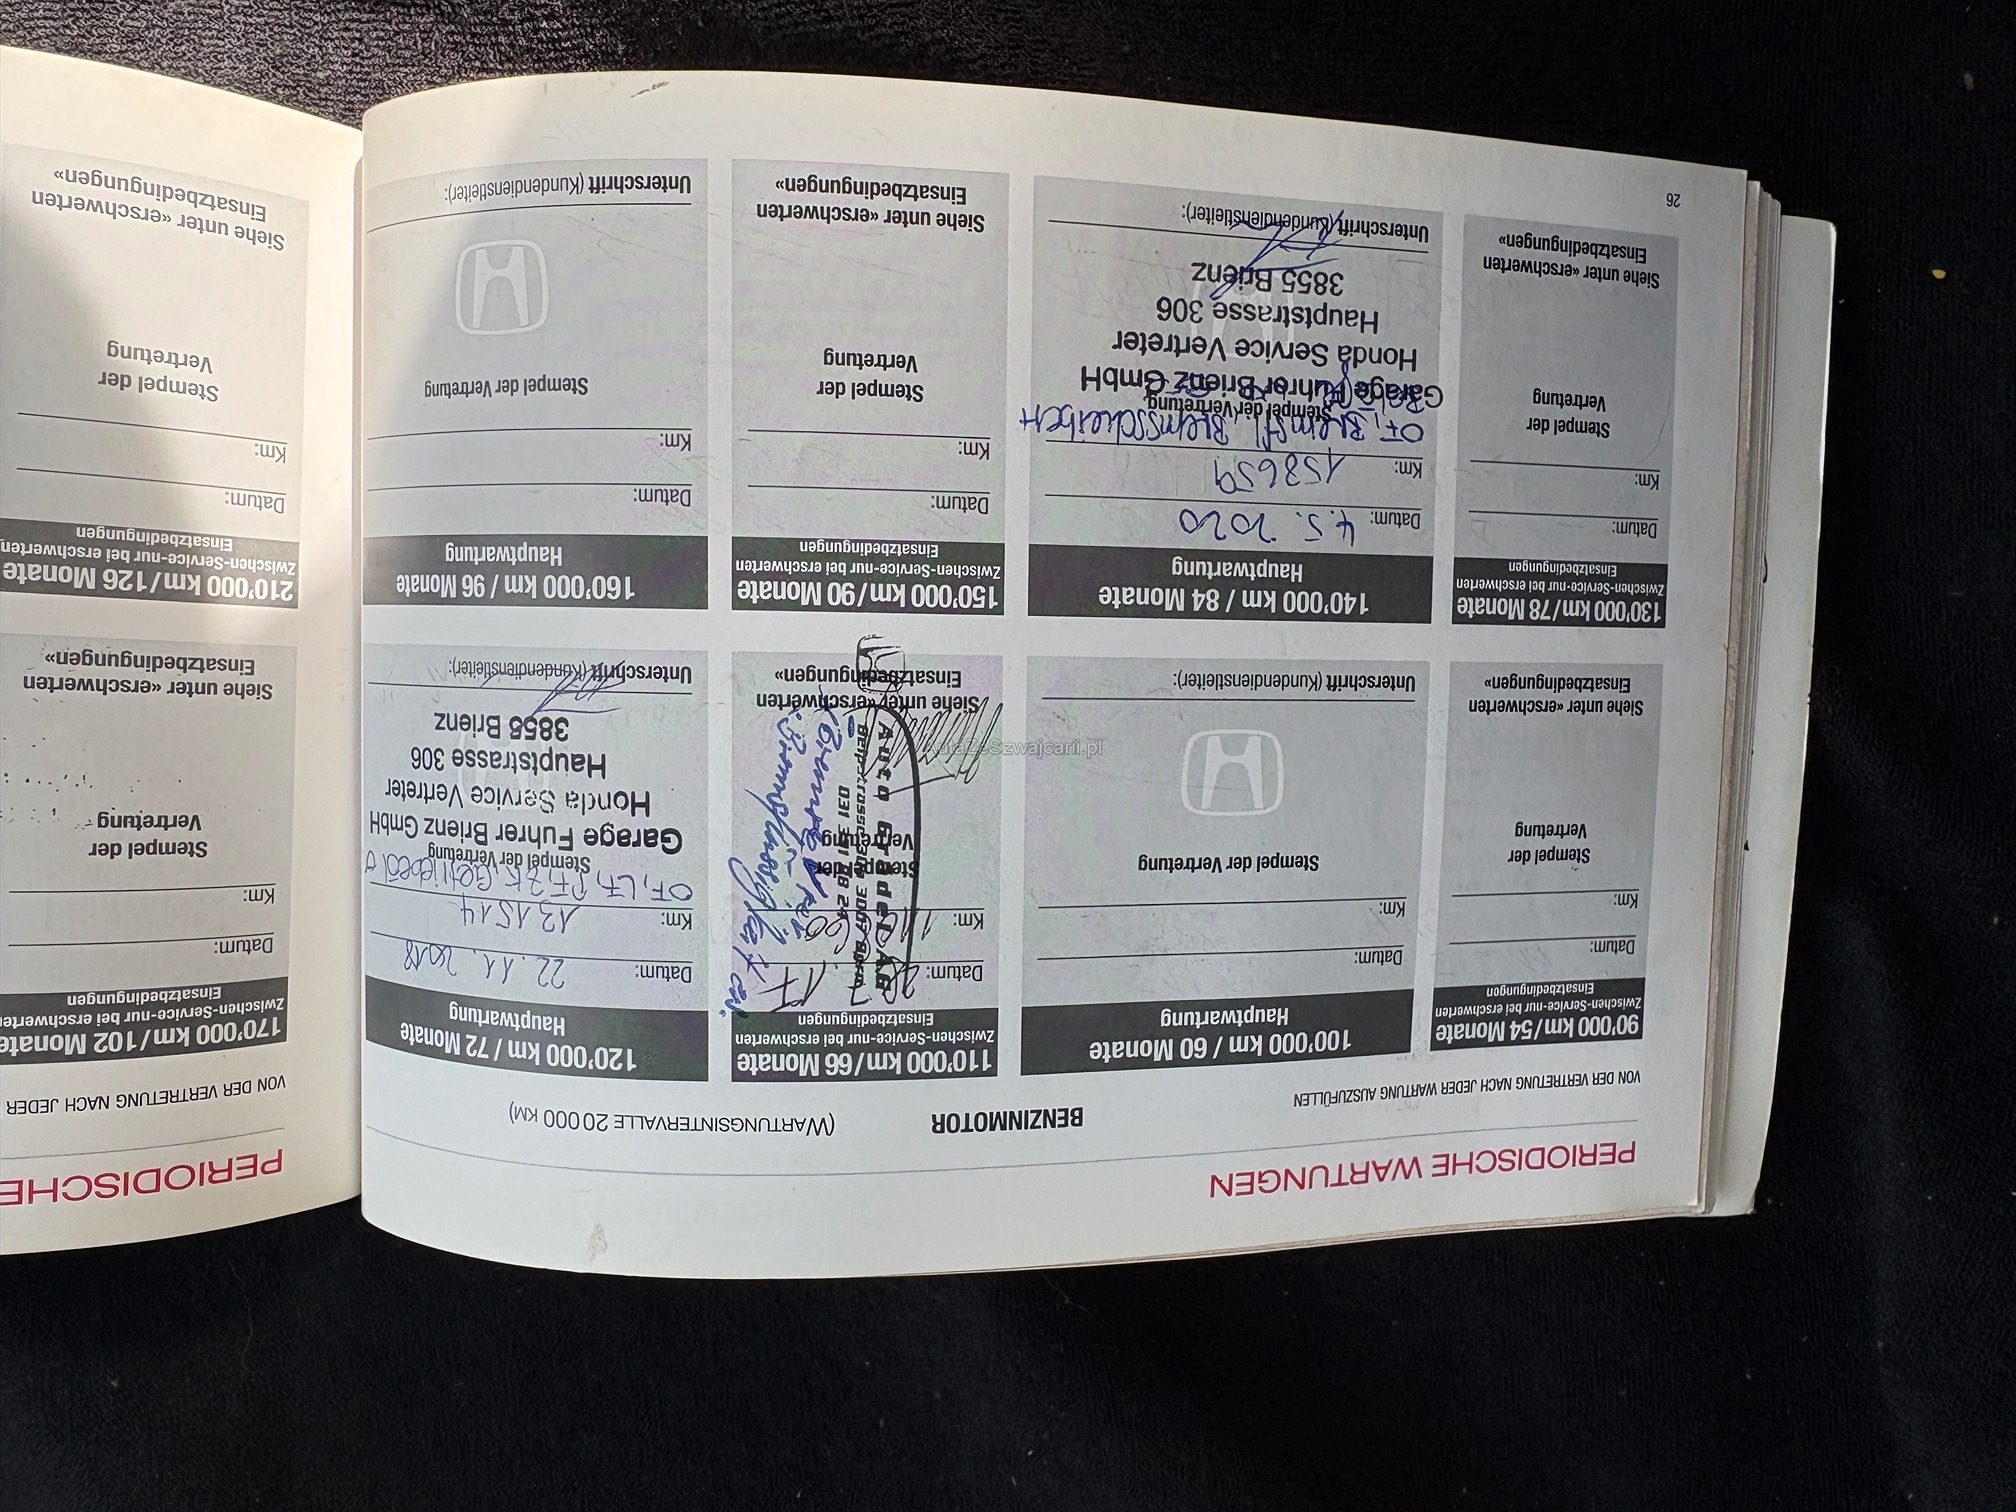 PERIODISCHE WARTUNGEN
VON DER VERTRETUNG NACH JEDER WARTUNG AUSZUFÜLLEN
BENZINMOTOR
(WARTUNGSINTERVALLE 20 000 KM)
90'000 km/54 Monate
Zwischen-Service-nur bei erschwerten
Einsatzbedingungen
Datum:
Km:
Stempel der
Vertretung
Siehe unter «erschwerten
Einsatzbedingungen»
100'000 km / 60 Monate
Hauptwartung
Datum:
Km:
Stempel der Vertretung
Unterschrift (Kundendienstleiter):
110'000 km/66 Monate
Zwischen-Service-nur bei erschwerten
Einsatzbedingungen
Datum:
Km:
Stempel der
Vertretung
Auto Gradel AG
3007 Bern
Bremsflüssigkeit
Siehe unter «erschwerten
Einsatzbedingungen»
120'000 km / 72 Monate
Hauptwartung
Datum: 22.11.2018
Km: 131514
OF, LF, PF, ZK, Getriebeöl
Stempel der Vertretung
Garage Fuhrer Brienz GmbH
Honda Service Vertreter
Hauptstrasse 306
3855 Brienz
Unterschrift (Kundendienstleiter):
130'000 km/78 Monate
Zwischen-Service-nur bei erschwerten
Einsatzbedingungen
Datum:
Km:
Stempel der
Vertretung
Siehe unter «erschwerten
Einsatzbedingungen»
140'000 km / 84 Monate
Hauptwartung
Datum: 4.5.2020
Km: 158659
OF, Bremsfl, Bremsscheiben
Stempel der Vertretung
Garage Fuhrer Brienz GmbH
Honda Service Vertreter
Hauptstrasse 306
3855 Brienz
Unterschrift (Kundendienstleiter):
150'000 km/90 Monate
Zwischen-Service-nur bei erschwerten
Einsatzbedingungen
Datum:
Km:
Stempel der
Vertretung
Siehe unter «erschwerten
Einsatzbedingungen»
160'000 km / 96 Monate
Hauptwartung
Datum:
Km:
Stempel der Vertretung
Unterschrift (Kundendienstleiter):
26
PERIODISCHE
VON DER VERTRETUNG NACH JEDER
170'000 km/102 Monate
Zwischen-Service-nur bei erschwerten
Einsatzbedingungen
Datum:
Km:
Stempel der
Vertretung
Siehe unter «erschwerten
Einsatzbedingungen»
210'000 km/126 Monate
Zwischen-Service-nur bei erschwerten
Einsatzbedingungen
Datum:
Km:
Stempel der
Vertretung
Siehe unter «erschwerten
Einsatzbedingungen»
AutaZeSzwajcarii.pl